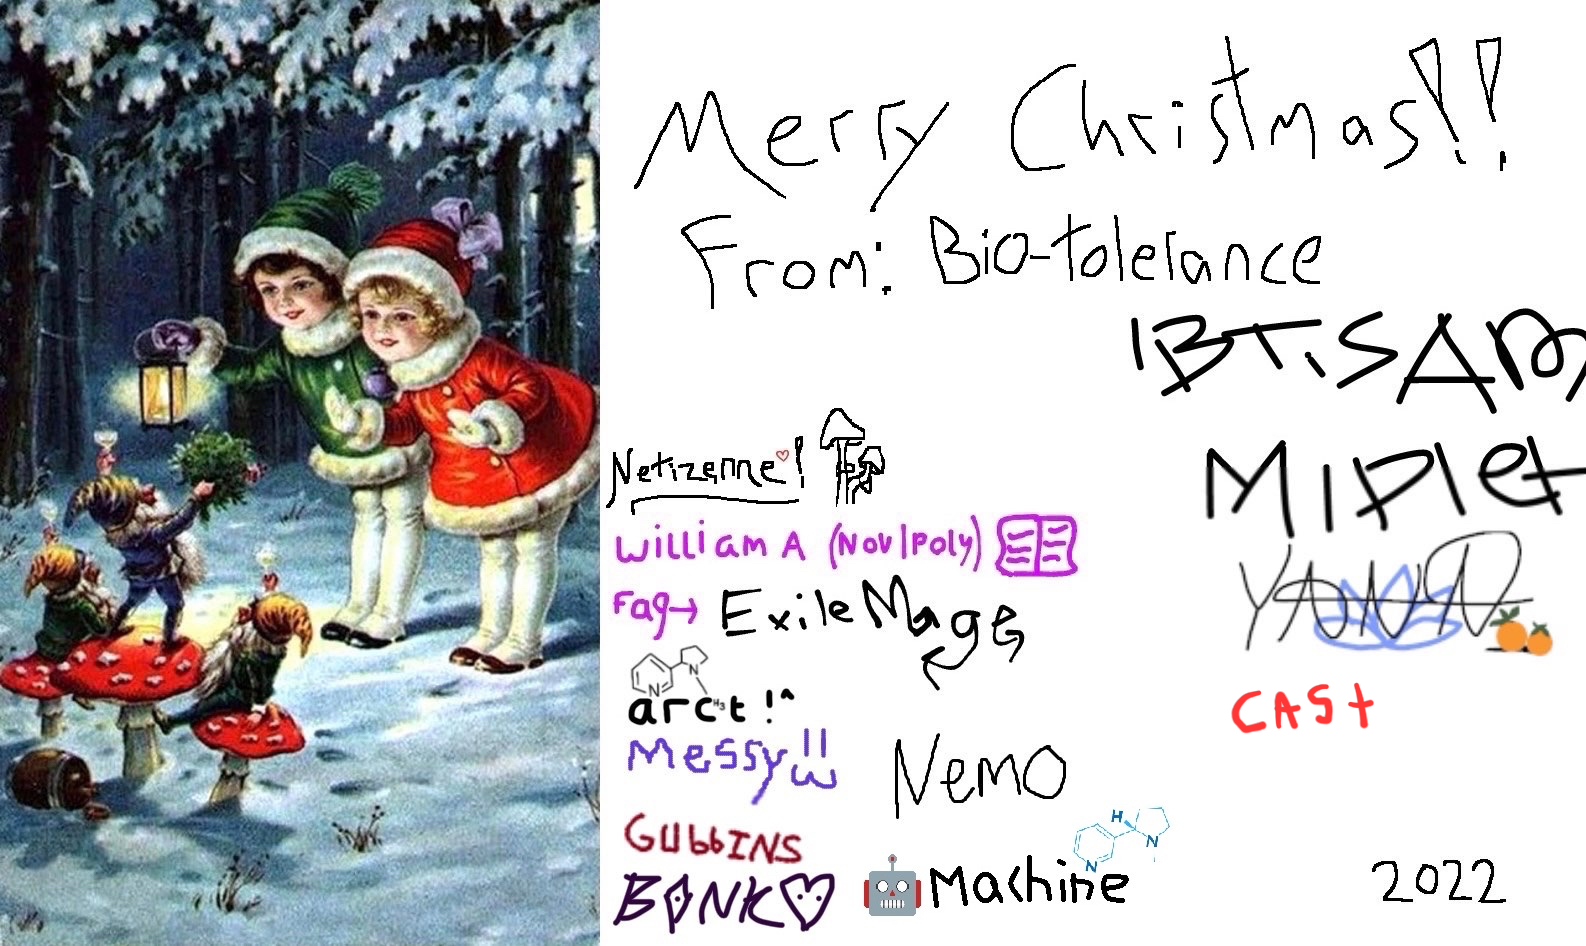 Merry Christmas!!
From: Bio-tolerance
IBTiSAM
Netizenne!
MIPlet
William A (Nov|Poly)
YANA
Fag→ ExileMage
N
N
H3
arct!^
CAST
Messy!!
Nemo
GUbbINS
H
N
N
BONK
Machine
2022